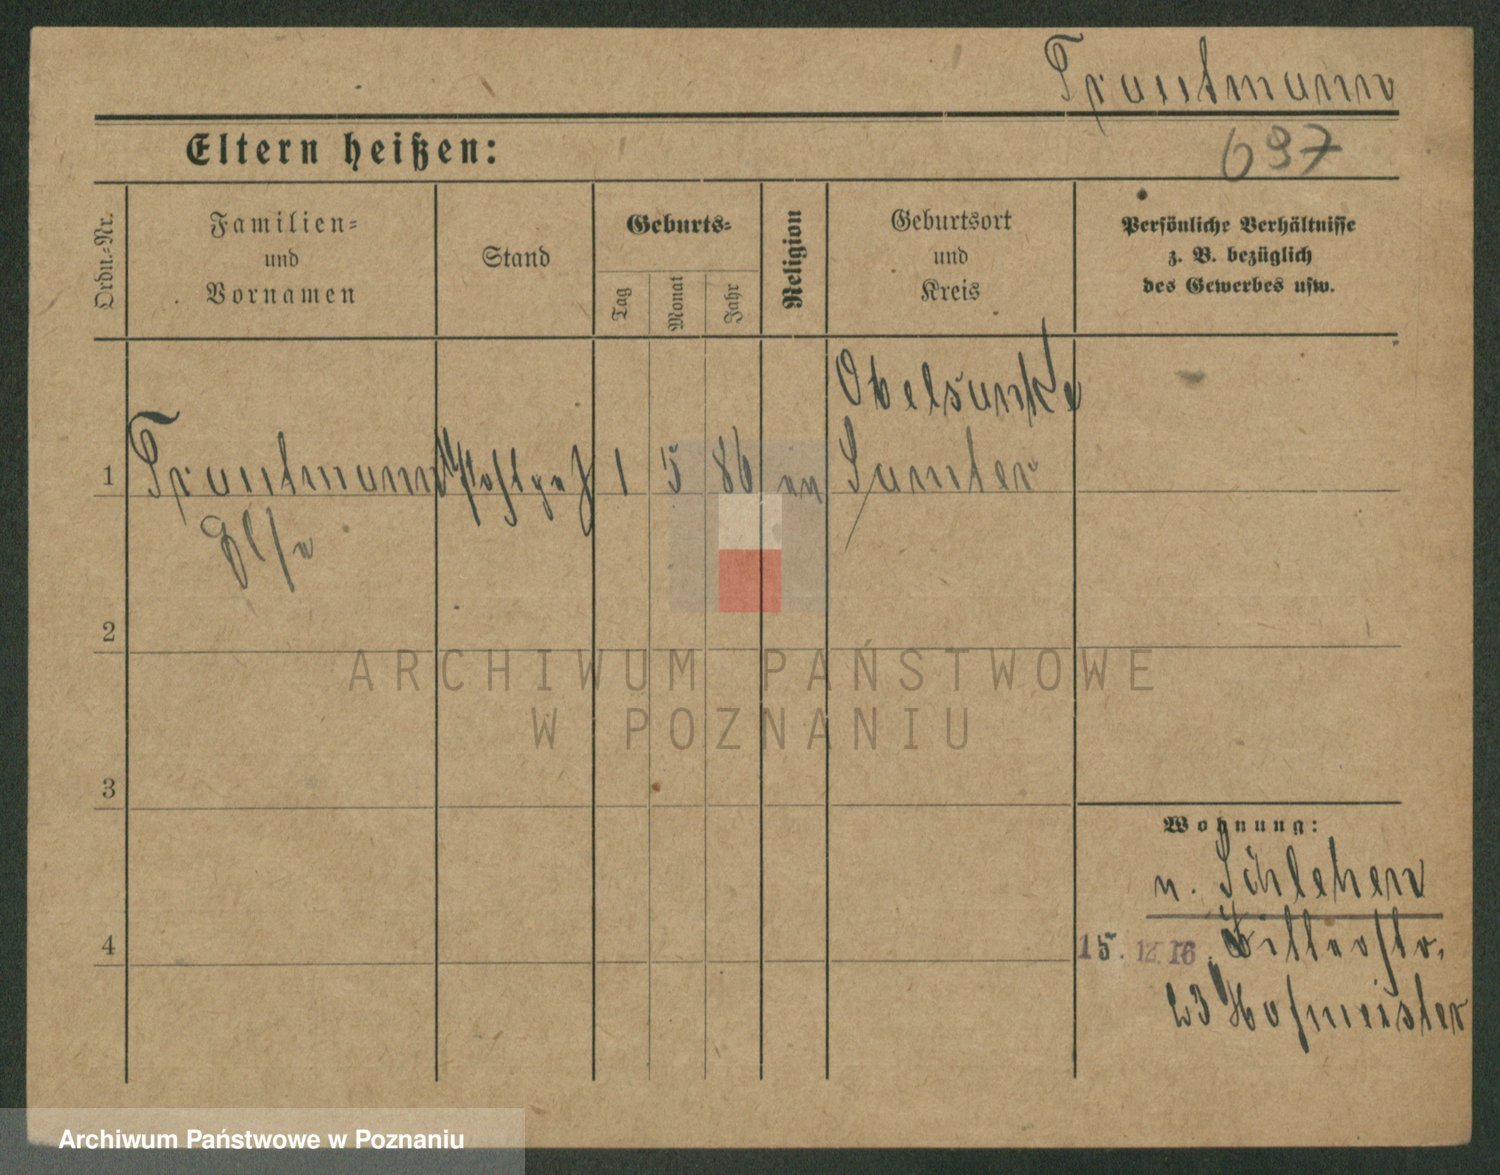 Trautmann
Eltern heißen:
697
Ordn.-Nr.
Familien-
und
Vornamen
Stand
Geburts-
Tag
Monat
Jahr
Religion
Geburtsort
und
Kreis
Persönliche Verhältnisse
z. B. bezüglich
des Gewerbes usw.
1
Trautmann
Else
1
5
86
ev
Samter
2
3
4
Wohnung:
n. Schlehen
15. 12. 16.
23 Hofmeister
ARCHIWUM PAŃSTWOWE
W POZNANIU
Archiwum Państwowe w Poznaniu